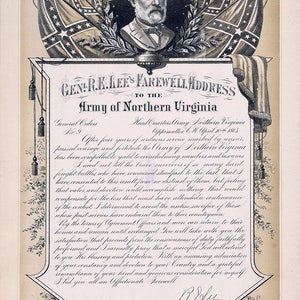 GENL. R.E. LEE'S FAREWELL ADDRESS
TO THE
Army of Northern Virginia
General Orders Head Quarters Army Northern Virginia
No. 9 Appomattox C.H. April 10th 1865
After four years of arduous service marked by unsurpassed courage and fortitude the Army of Northern Virginia
has been compelled to yield to overwhelming numbers and resources
I need not tell the survivors of so many hard
fought battles who have remained steadfast to the last that I
have consented to this result from no distrust of them, but feeling
that valor and devotion could accomplish nothing that would
compensate for the loss that must have attended a continuance
of the contest I determined to avoid the useless sacrifice of those
whose past services have endeared them to their countrymen.
By the terms of Agreement Officers and men can return to their
homes and remain until exchanged. You will take with you the
satisfaction that proceeds from the consciousness of duty faithfully
performed and I earnestly pray that a merciful God will extend to
you His blessing and protection. With an unceasing admiration
of your constancy and devotion to your Country and a grateful
remembrance of your kind and generous consideration for myself
I bid you all an Affectionate Farewell
R E Lee